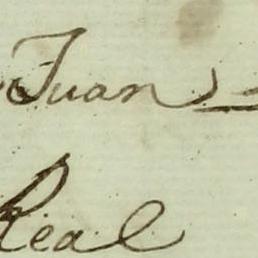 Juan
Real